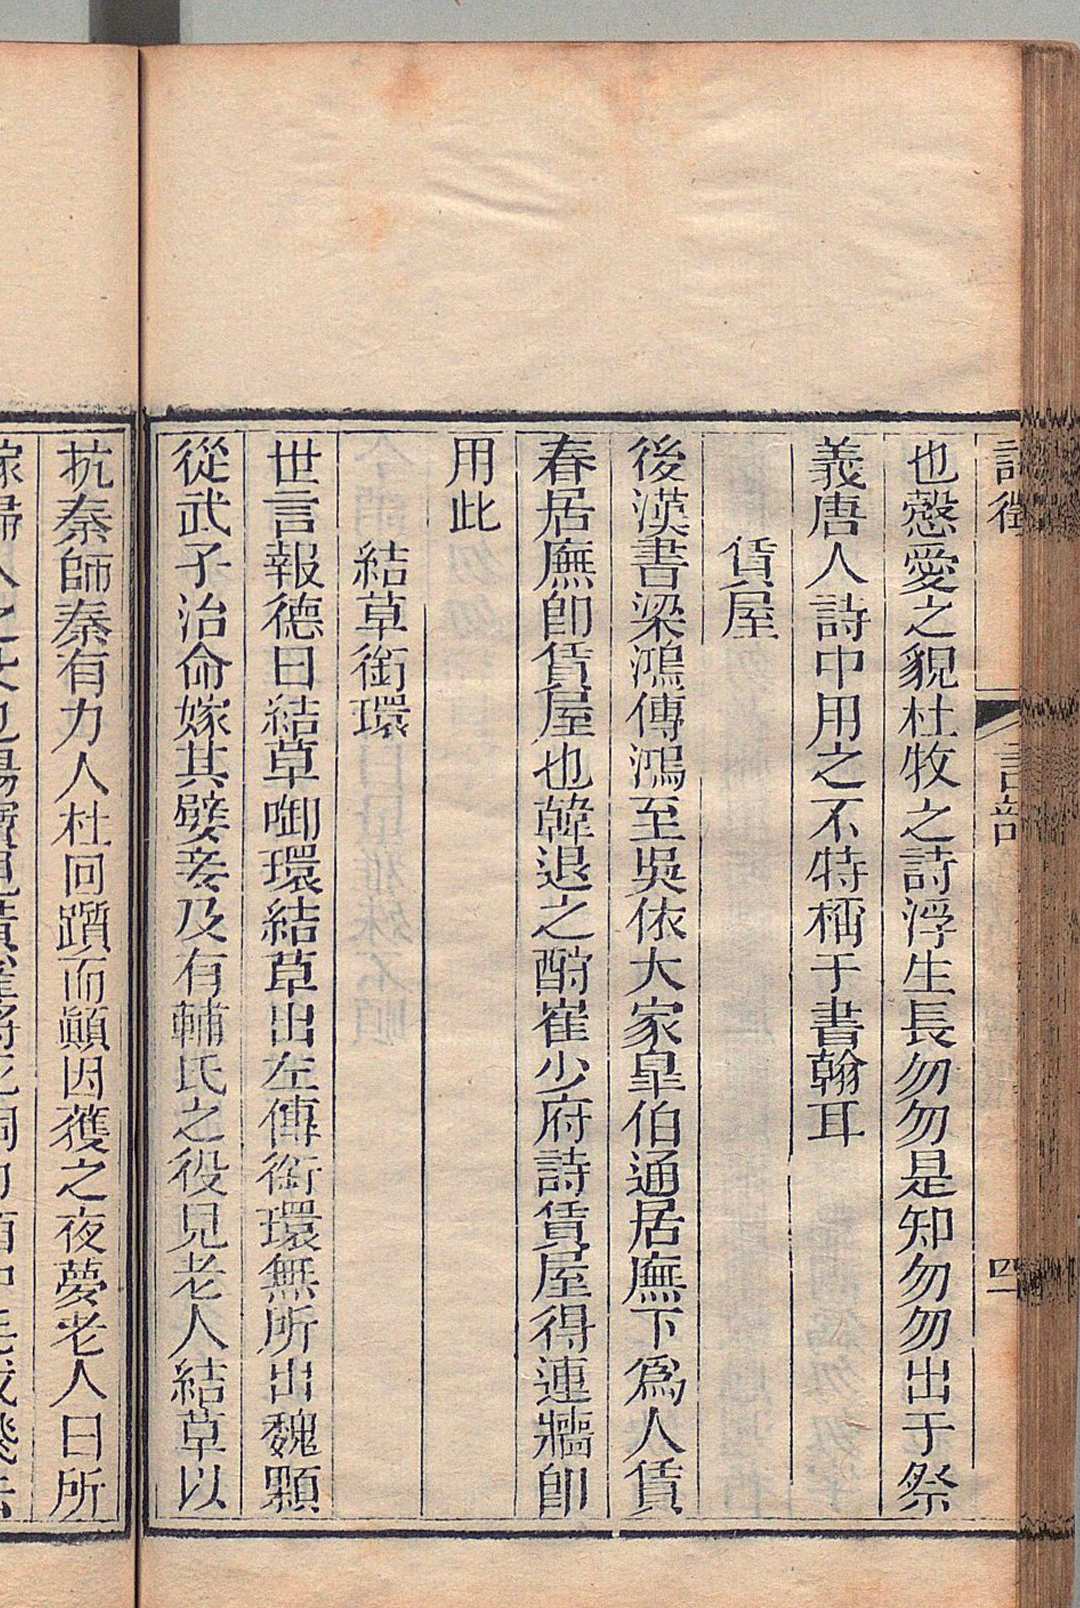 言部
四
也慤愛之貌杜牧之詩浮生長勿勿是知勿勿出于祭
義唐人詩中用之不特稱于書翰耳
賃屋
後漢書梁鴻傳鴻至吳依大家臯伯通居廡下爲人賃
春居廡卽賃屋也韓退之酧崔少府詩賃屋得連牆卽
用此
結草銜環
世言報德曰結草啣環結草出左傳銜環無所出魏顆
從武子治命嫁其嬖妾及有輔氏之役見老人結草以
抗秦師秦有力人杜回躓而顚因獲之夜夢老人曰所